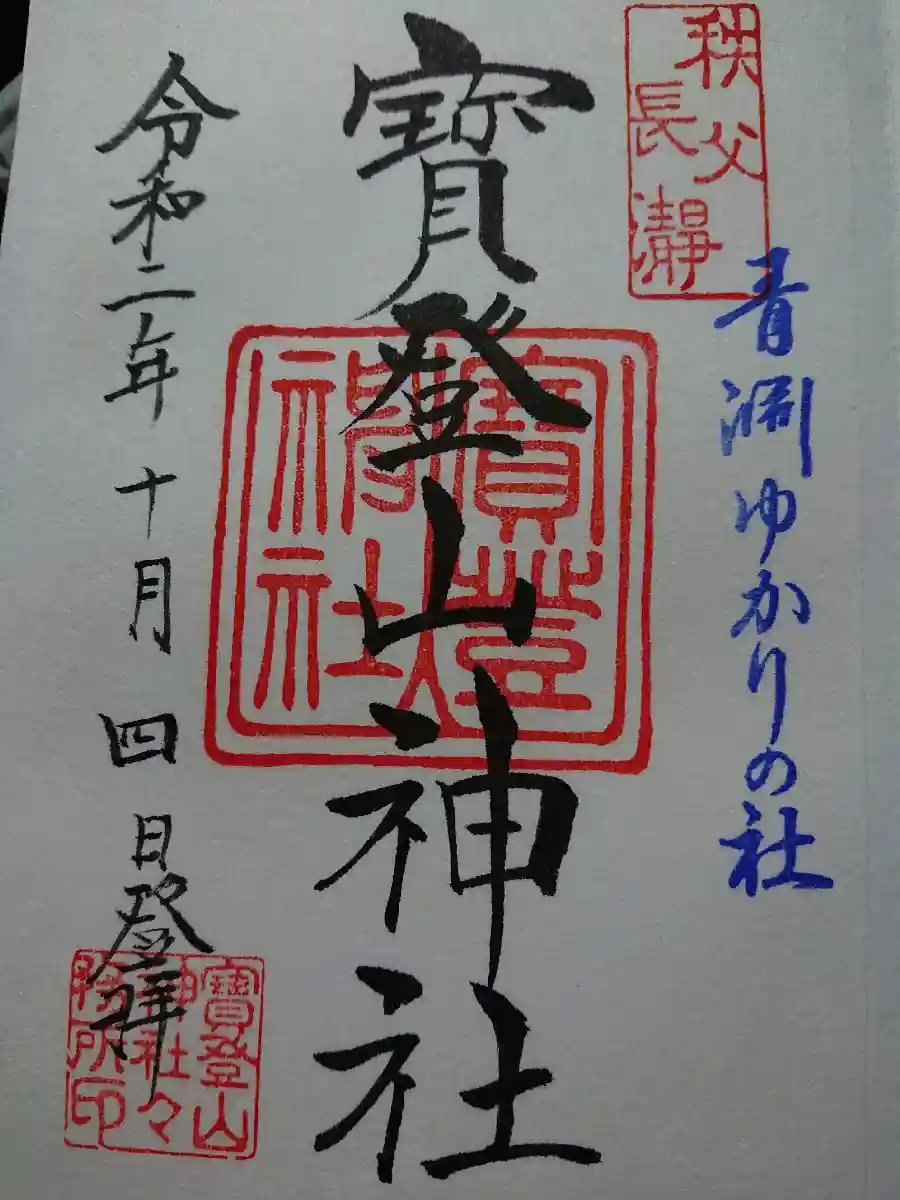 秩父
長瀞
青淵ゆかりの社
寳登山神社
寳登
山
神社
令和二年十月四日登拝
寳登山
神社々
務所印